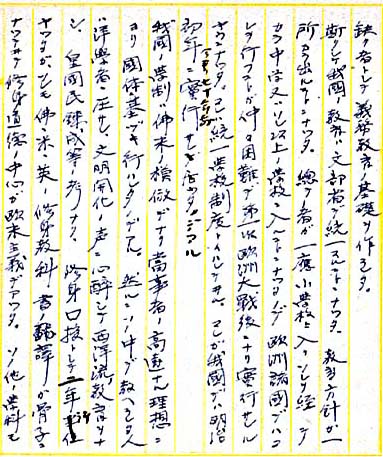 缺ク者トシテ義務教育ノ基礎ヲ作ッタ。
斯クシテ我國ノ教育ハ文部省デ統一スルコトニナッタ。 教育方針ガ一
所カラ出ルコトニナッタ。 總テノ者ガ一應小學校ニ入ッテソレヲ経テ
カラ中學又ハソレ以上ノ學校ニ入ルコトニナッタガ 欧洲諸國デハコ
レヲ行フコトガ仲々困難デ第一次欧洲大戰後ニナリ實行サレル
ヤウニナッタ。コレガ統一學校制度トイハレテヰル。コレガ我國デハ明治
初年ニ實行サレタノデアル
我國ノ學制ハ佛米ノ模倣デナク當事者ノ高遠ナル理想ニ
ヨリ國体ニ基ヅキ行ハレタノデアル。然ルニソノ中デ教ヘラレタ人
ハ洋學者ニ圧サレ、文明開化ノ声ニ心酔シテ西洋流教育ヲナ
シ、皇國民錬成等ヲ考ヘナク。 修身口授トシテ二年間位
ヤッタガソレモ佛・米・英ノ修身教科書飜譯ガ骨子ニ
ナッテヰテ修身道徳ノ中心ガ欧米主義デアッタ。ソノ他ノ學科モ